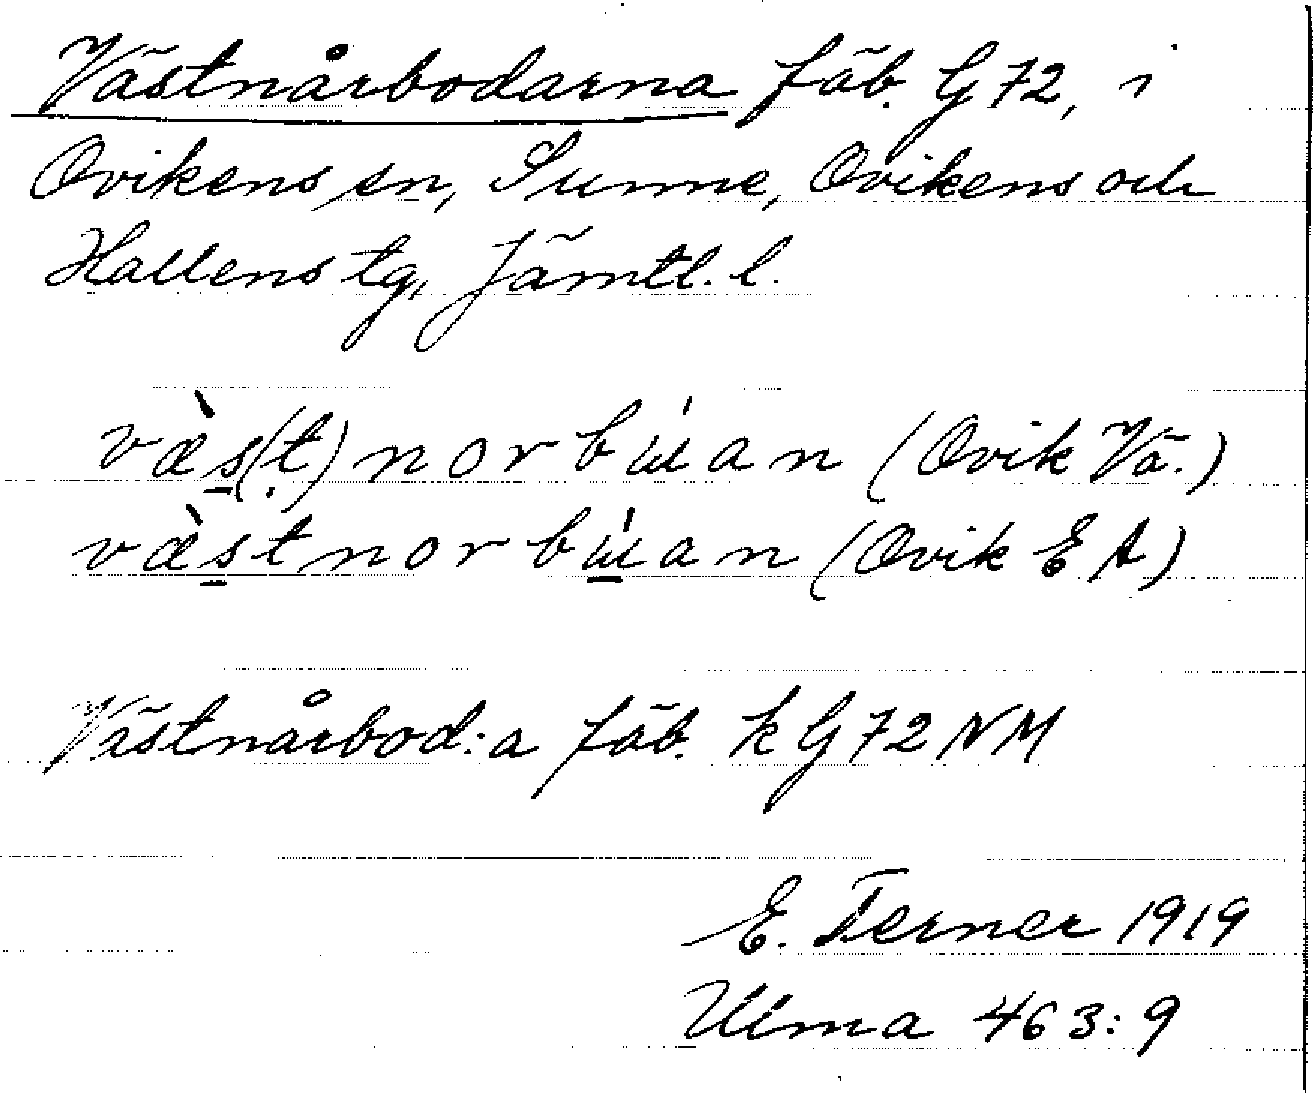 Västnårbodarna fäb. G 72, i
Ovikens sn, Sunne, Ovikens och
Hallens tg, Jämtl. l.
væ̀s(t)norbɯ́an (Ovik Vä.)
væ̀stnorbɯ́an (Ovik E A)
Västnårbod:a fäb. k G 72 NM
E. Terner 1919
Ulma 463:9